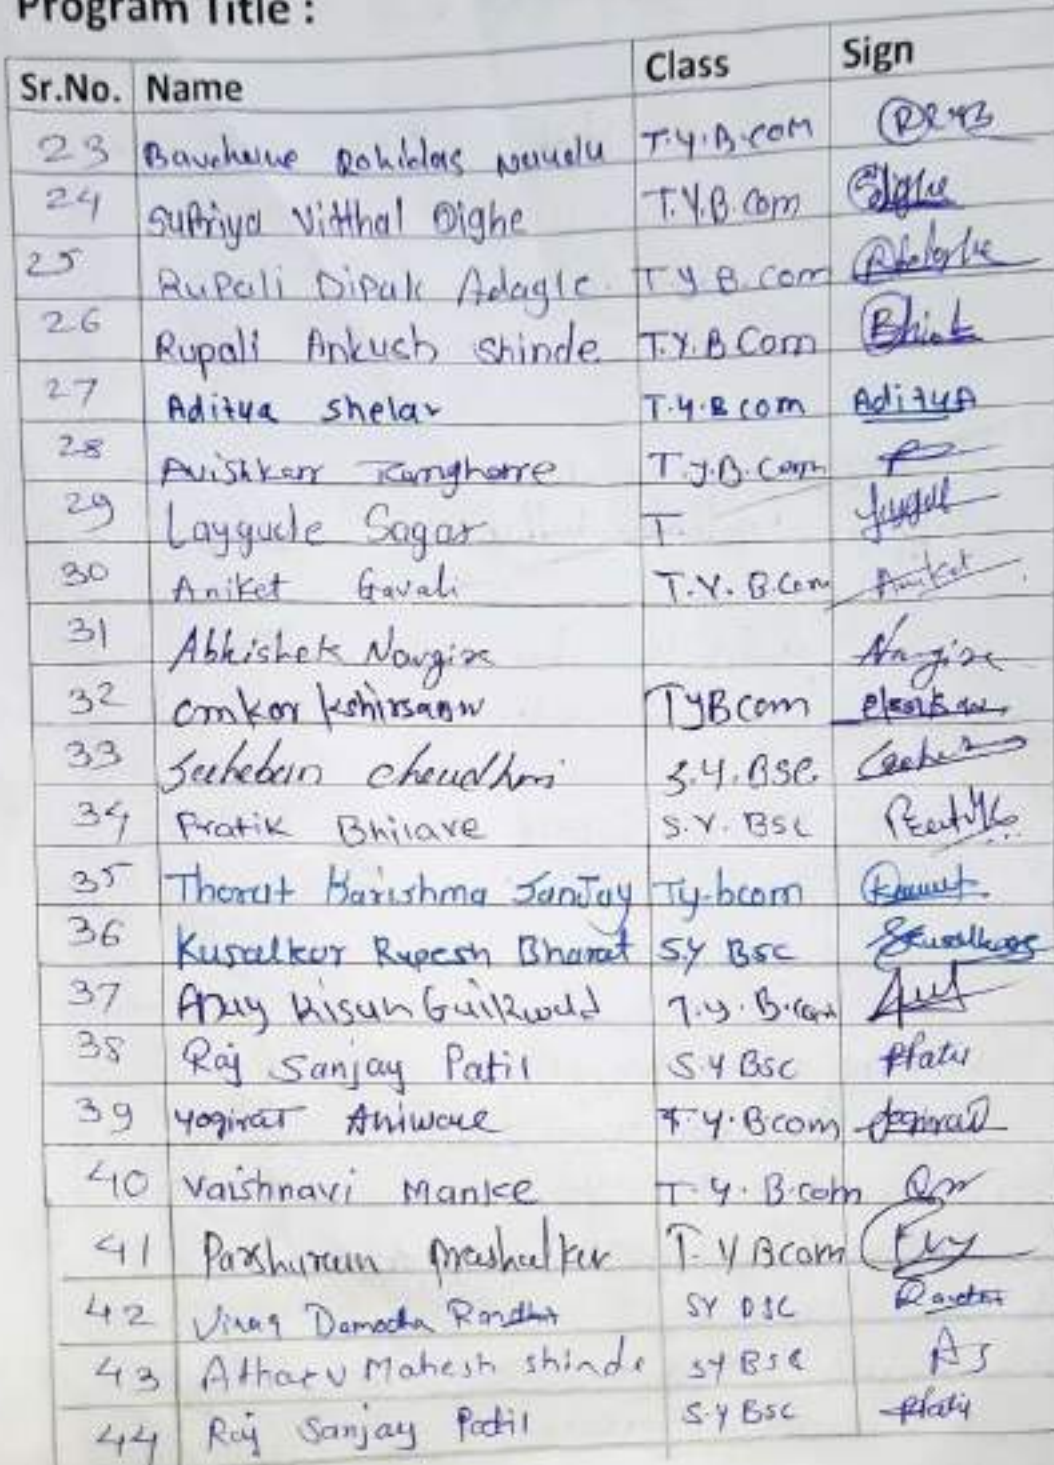 Program Title :
Sr.No. Name Class Sign
23 Rohidas T.Y.B.com
24 Supriya Vitthal Dighe T.Y.B.Com
25 Rupali Dipak Adagle T Y B.com
26 Rupali Ankush Shinde T.Y.B Com
27 Aditya Shelar T.Y.B com AdityA
28 Avishkarr T.Y.B.Com
29 Laygude Sagar T.
30 Aniket Gavali T.Y. B.Com Aniket
31 Abhishek Navgire Navgire
32 Omkar kshirsagar TYBcom
33 S.Y.BSC
34 Pratik Bhilare S.Y. BSC
35 Thorat Karishma SanJay Ty-bcom
36 Kusalkar Rupesh Bharat SY BSC
37 Ajay Kisan Gaikwad T.y.B.com
38 Raj Sanjay Patil S.Y BSC
39 yogirat T.Y.Bcom
40 Vaishnavi Manke T.Y.B.com
41 T.Y Bcom
42 Virag SY BSC
43 Atharv Mahesh shinde SY BSC AS
44 Raj Sanjay Patil S.Y BSC